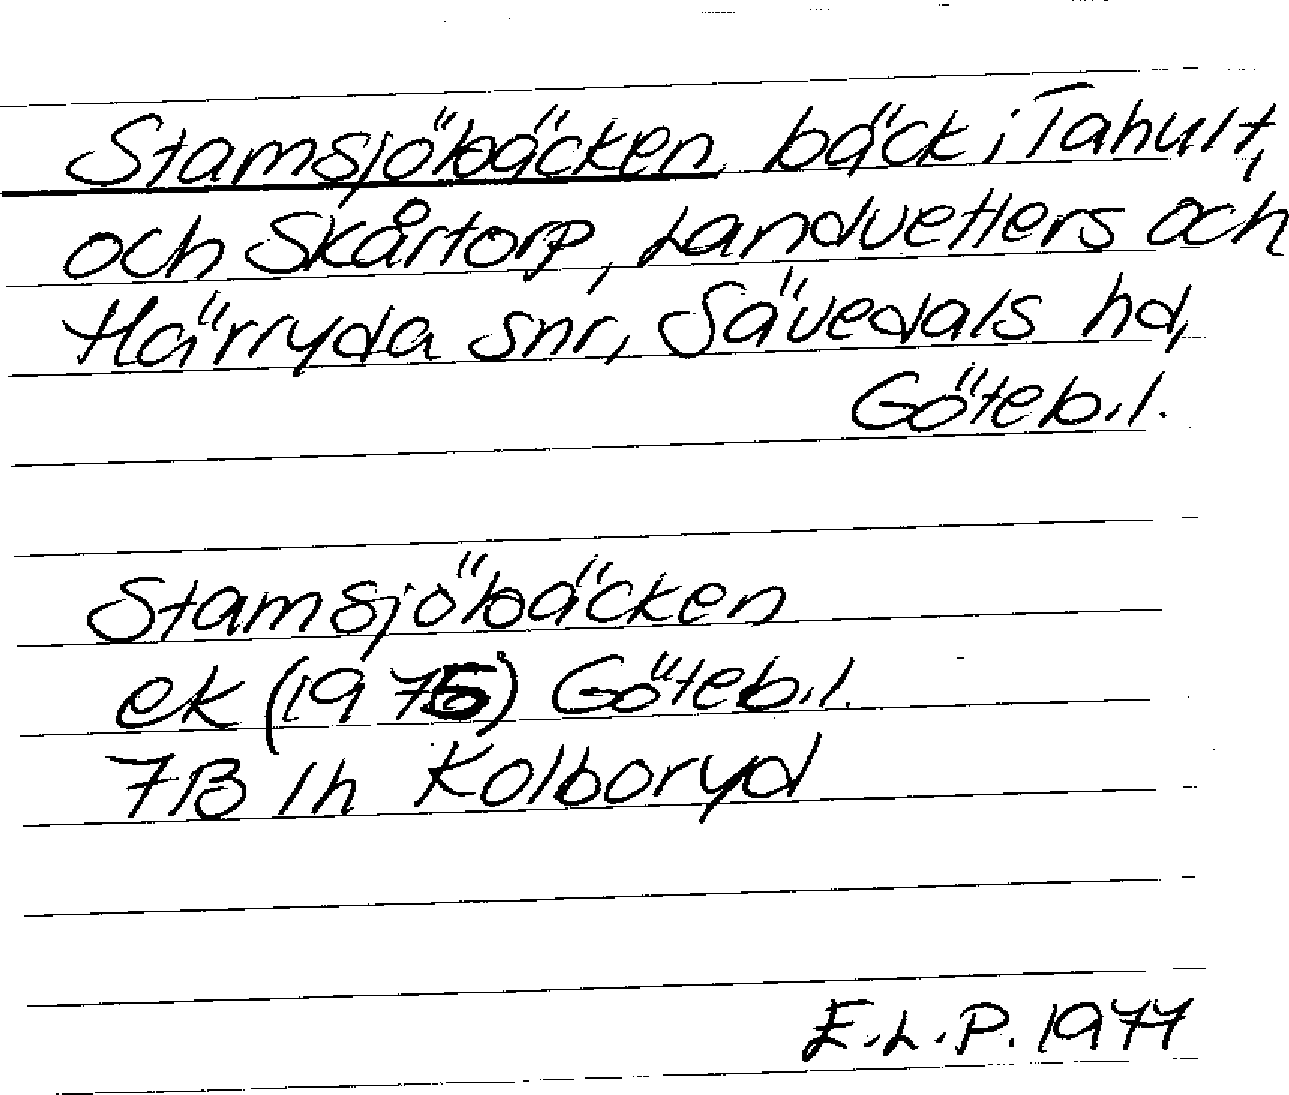 Stamsjöbäcken, bäck i Tahult,
och Skårtorp, Landvetters och
Härryda snr, Sävedals hd,
Göteb.l.
Stamsjöbäcken
ek (1975) Göteb.l.
7B 1h Kolboryd
E.L.P. 1977